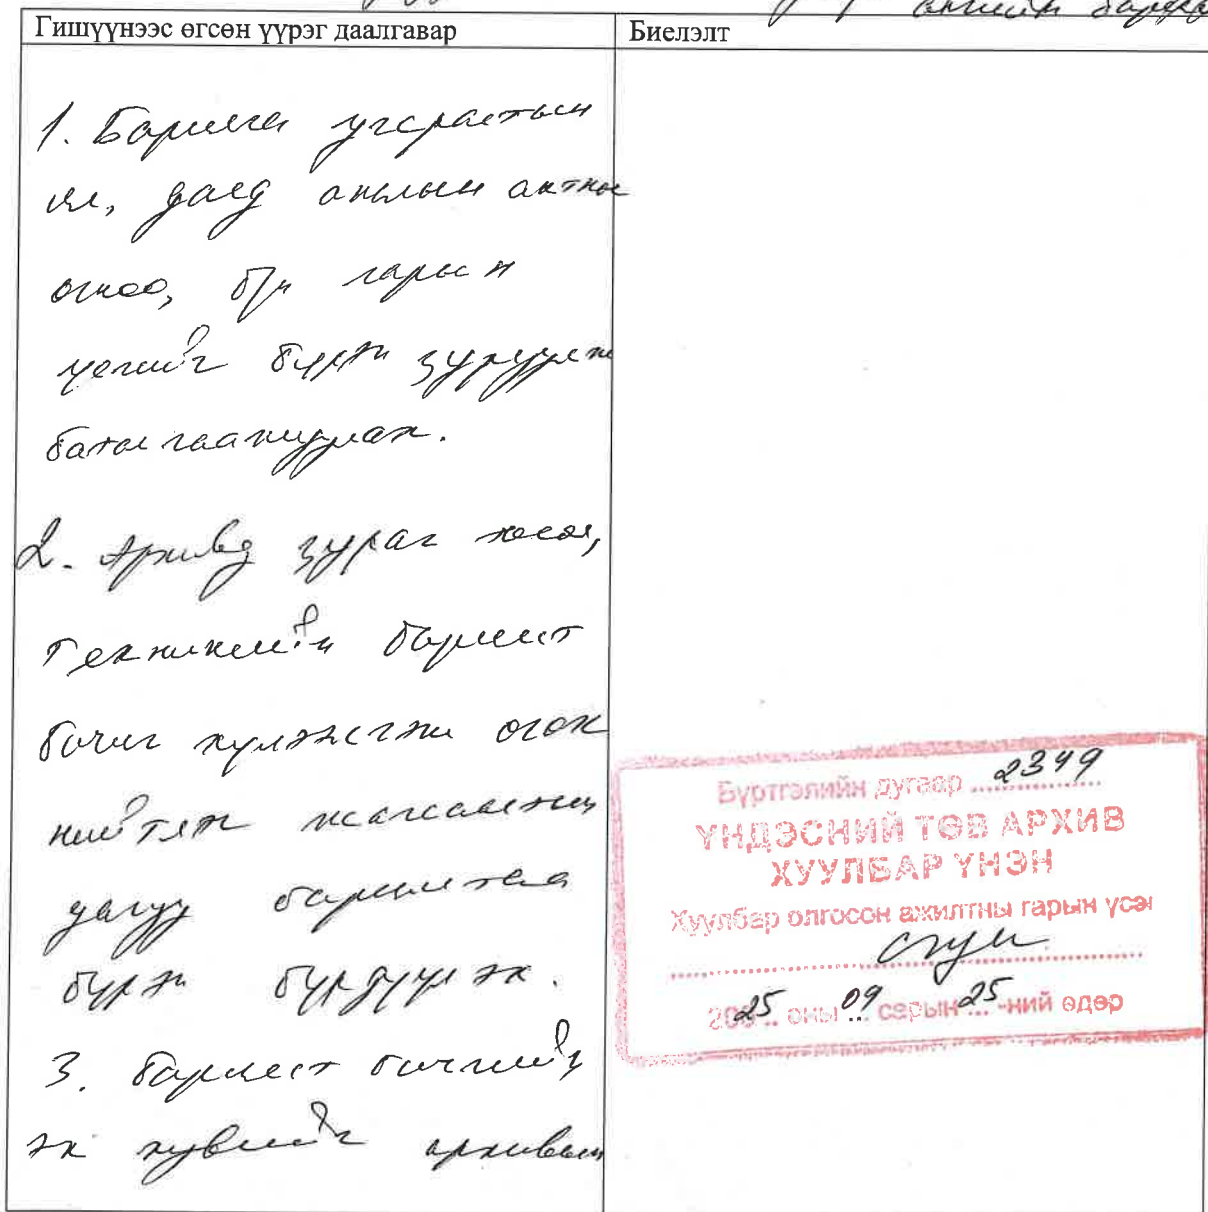 Гишүүнээс өгсөн үүрэг даалгавар
Биелэлт
1. Барилга угсралтын
ил, далд ажлын актны
огноо, гарын
үсгийг бүрэн зуруулж
баталгаажуулах.
2. Архивд зураг төсөл,
техникийн баримт
бичиг хүлээлгэж өгөх
нийтлэг жагсаалтын
дагуу баримтаа
бүрэн бүрдүүлэх.
3. баримт бичгийн
эх хувийг архивын
Бүртгэлийн дугаар 2349
ҮНДЭСНИЙ ТӨВ АРХИВ
ХУУЛБАР ҮНЭН
Хуулбар олгосон ажилтны гарын үсэг
2025 оны 09 сарын 25 -ний өдөр